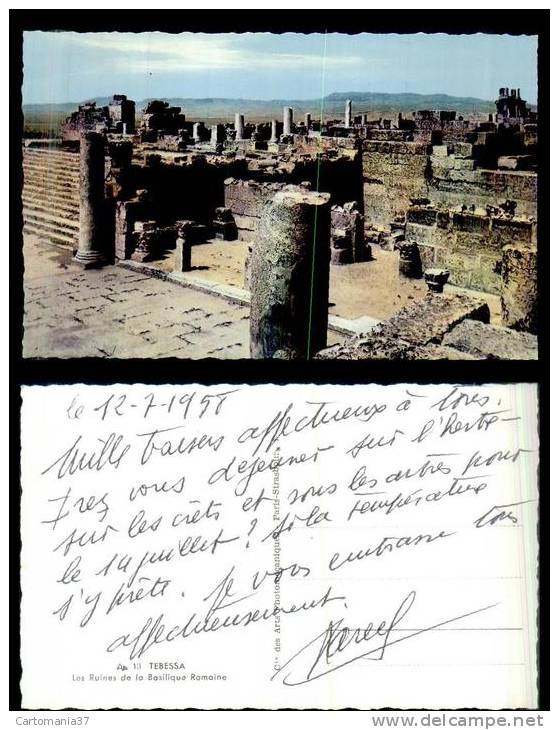 le 12-7-1958
Mille baisers affectueux à tous.
Irez vous déjeuner sur l'herbe
sur les crêts et sous les arbres pour
le 14 juillet? si la température
s'y prête. Je vous embrasse tous
affectueusement.
13 TEBESSA
Les Ruines de la Basilique Romaine
Cie des Arts Photomécaniques Paris-Strasbourg
Cartomania37